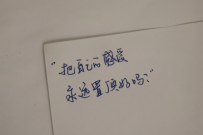 “把自己的感受
永远置顶好吗？”